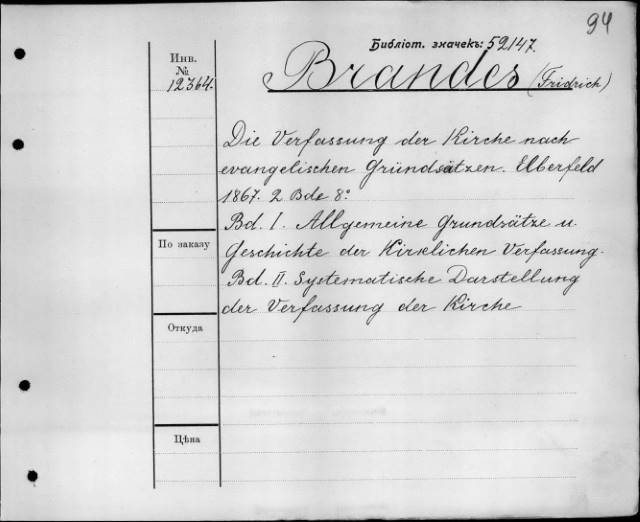 94
Библіот. значекъ: 52147.
Инв.
№
12364.
Brandes (Fridrich)
Die Verfassung der Kirche nach
evangelischen Gründsätzen. Elberfeld
1867. 2 Bde 8°
Bd. I. Allgemeine Grundsätze u.
Geschichte der Kirklichen Verfassung.
Bd. II. Systematische Darstellung
der Verfassung der Kirche
По заказу
Откуда
Цѣна